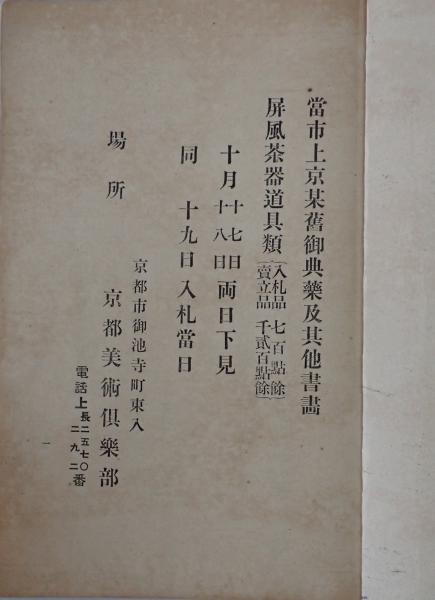 當市上京某舊御典藥及其他書畵
屏風茶器道具類（入札品 七百點餘
賣立品 千貳百點餘）
十月十七日
十八日兩日下見
同 十九日入札當日
場所
京都市御池寺町東入
京都美術俱樂部
電話上長二五七〇
二九二番
一